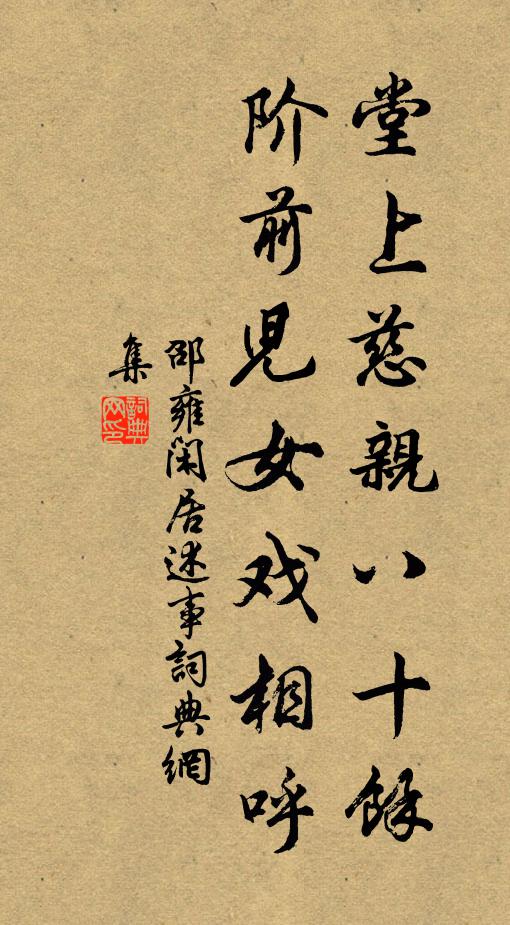 堂上慈親八十餘
阶前児女戏相呼
邵雍闲居述事詞典網
集
詞典网印